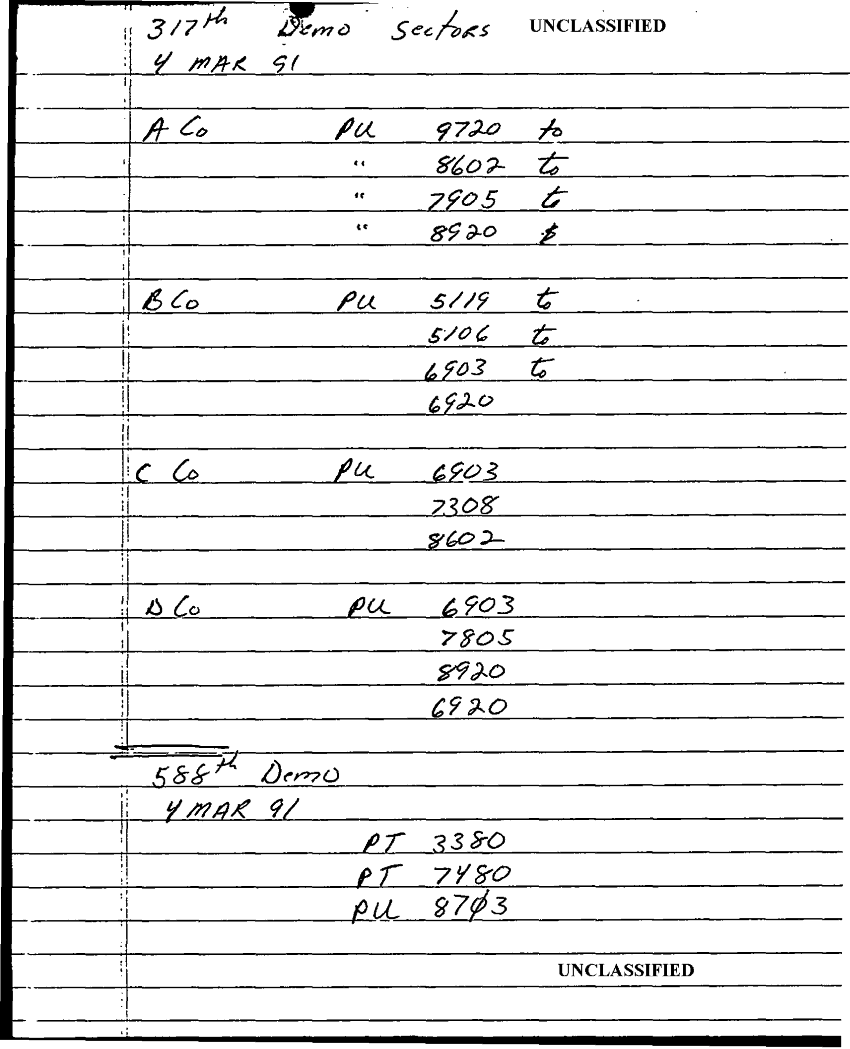 317th Demo Sectors UNCLASSIFIED
4 MAR 91
A Co PU 9720 to
" 8602 to
" 7905 to
" 8920
B Co PU 5119 to
5106 to
6903 to
6920
C Co PU 6903
7308
8602
D Co PU 6903
7805
8920
6920
588th Demo
4 MAR 91
PT 3380
PT 7480
PU 8703
UNCLASSIFIED